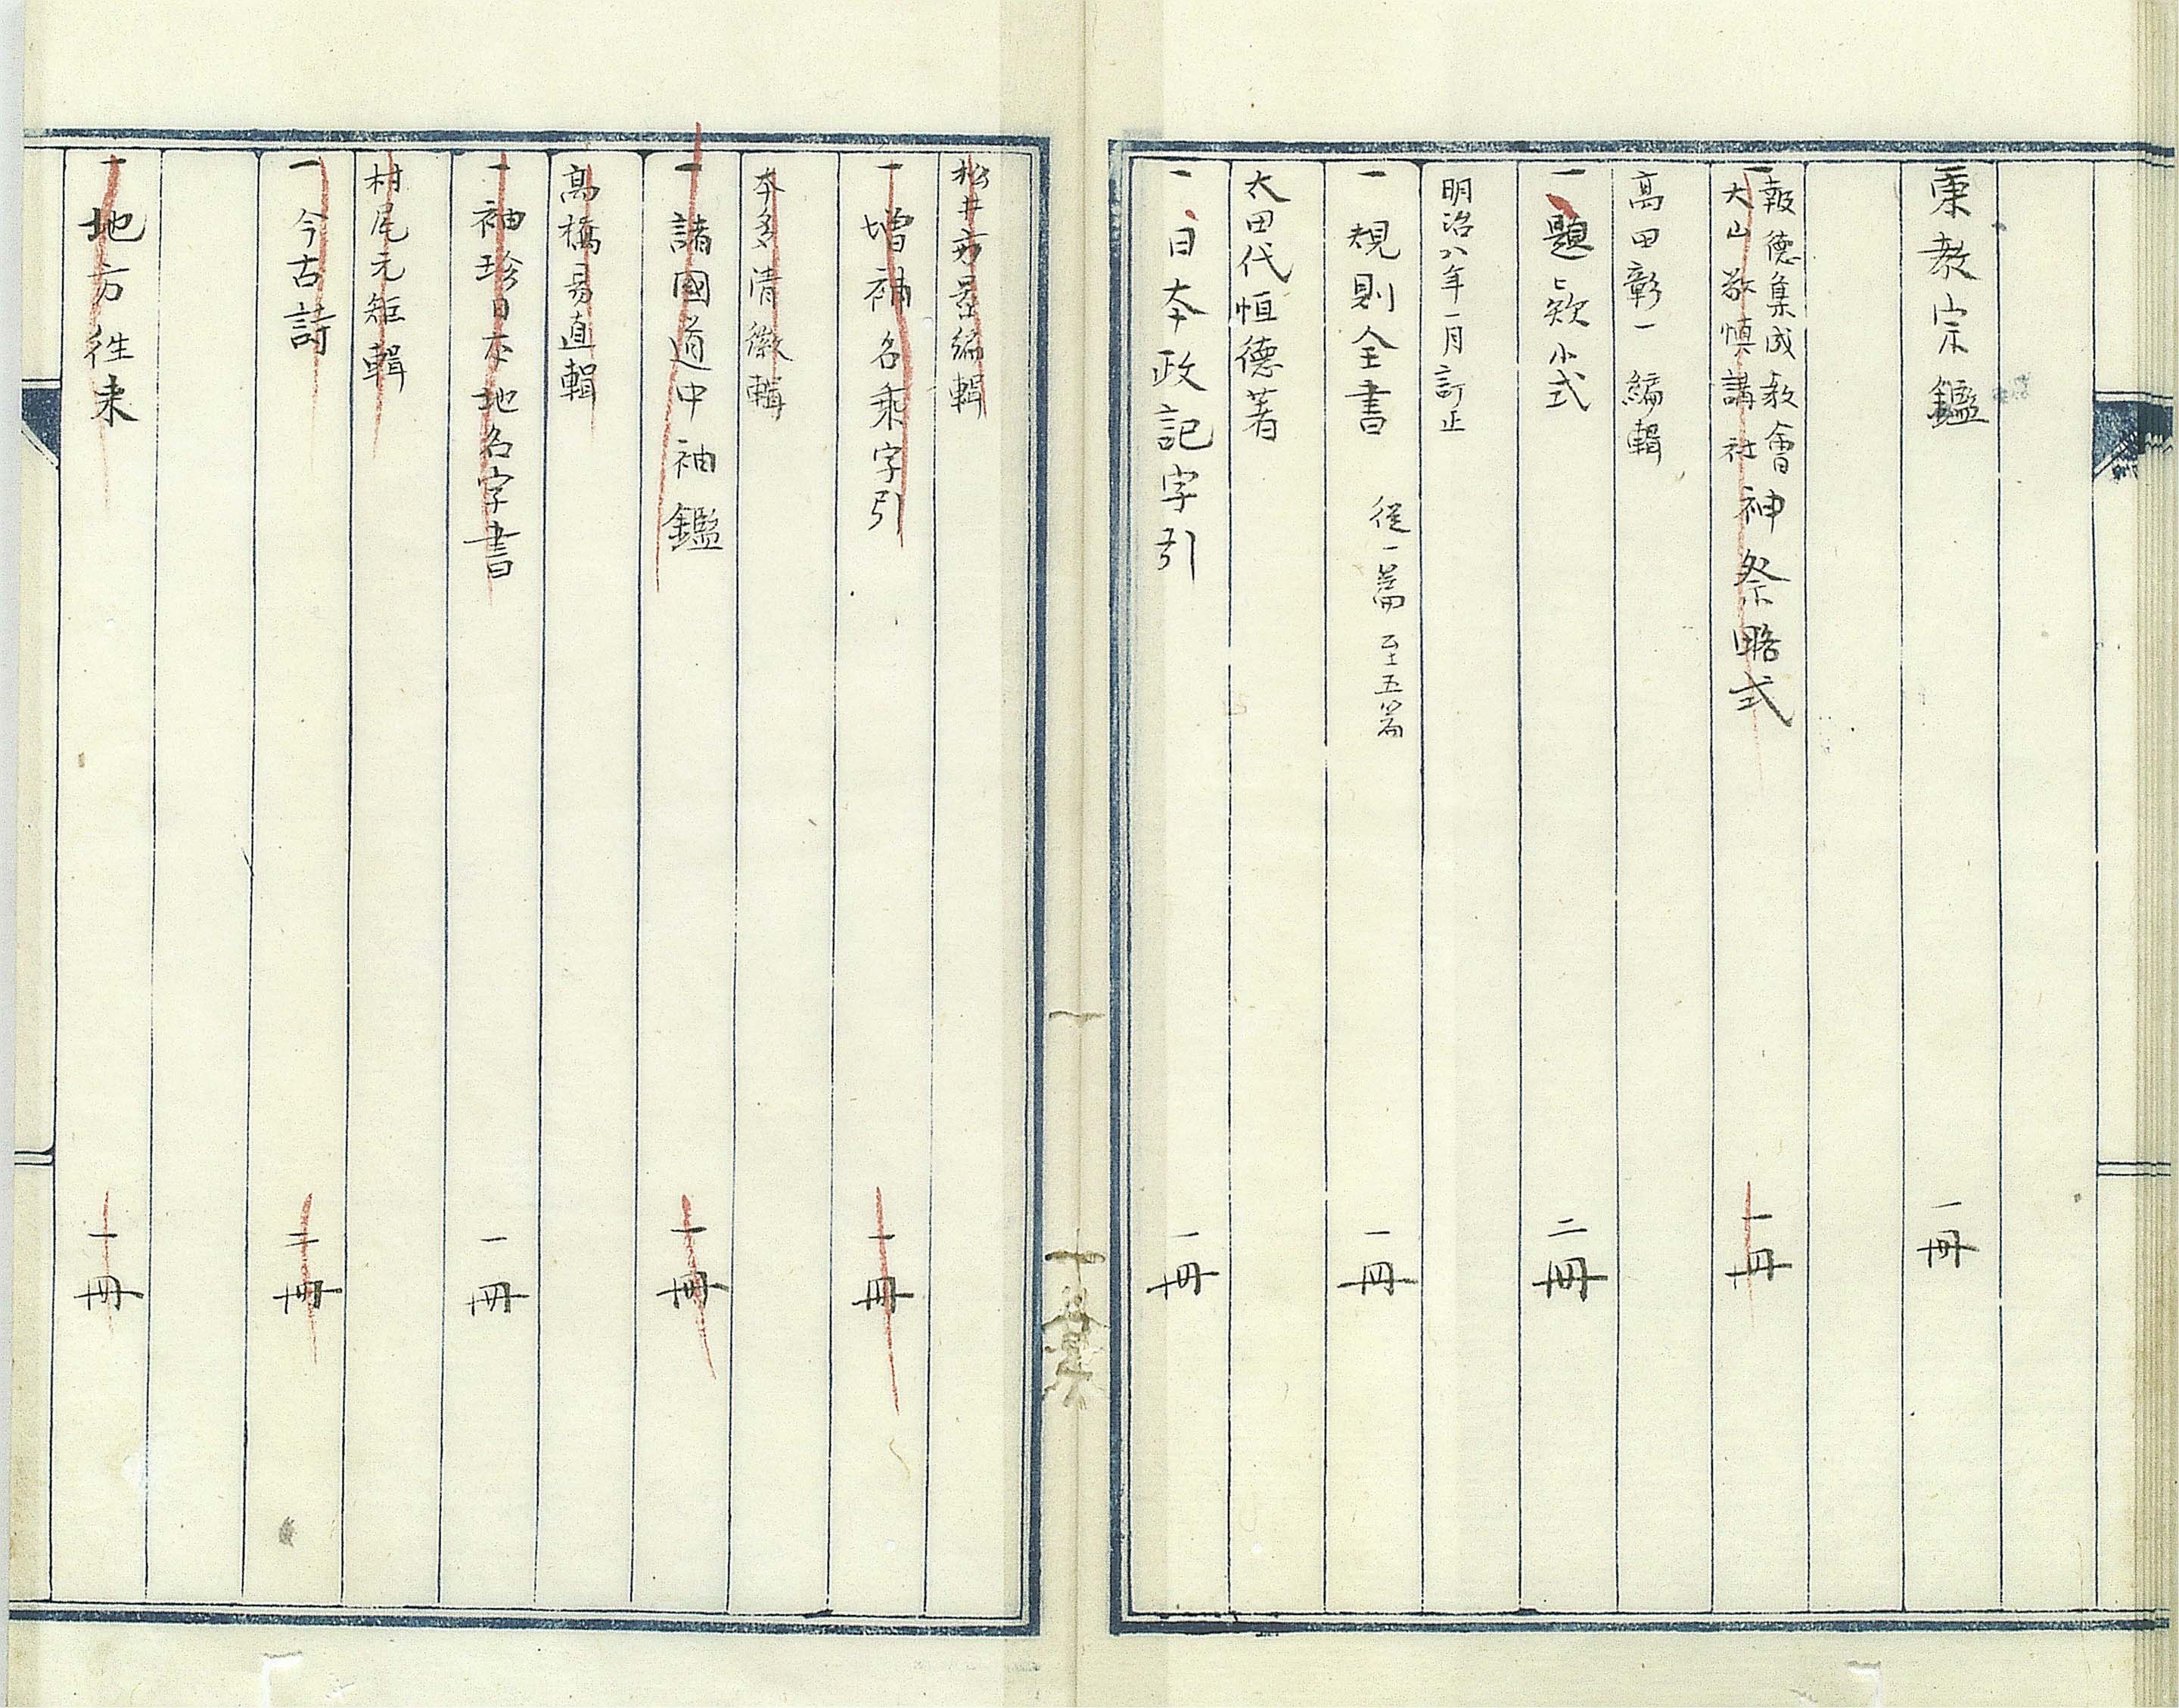 東教宗鑑 一冊
一 報德集成教會
大山敬慎講社 神祭略式 一冊
高田彰一編輯
一 題欵小式 二冊
明治八年一月訂正
一 規則全書 從一篇至五篇 一冊
太田代恒德著
一 日本政記字引 一冊
松井 編輯
一 增補名乘字引 一冊
本多清徽輯
一 諸國道中袖鑑 一冊
髙橋易直輯
一 袖珍日本地名字書 一冊
村尾元矩輯
一 今古詩 二冊
一 地方徃来 一冊